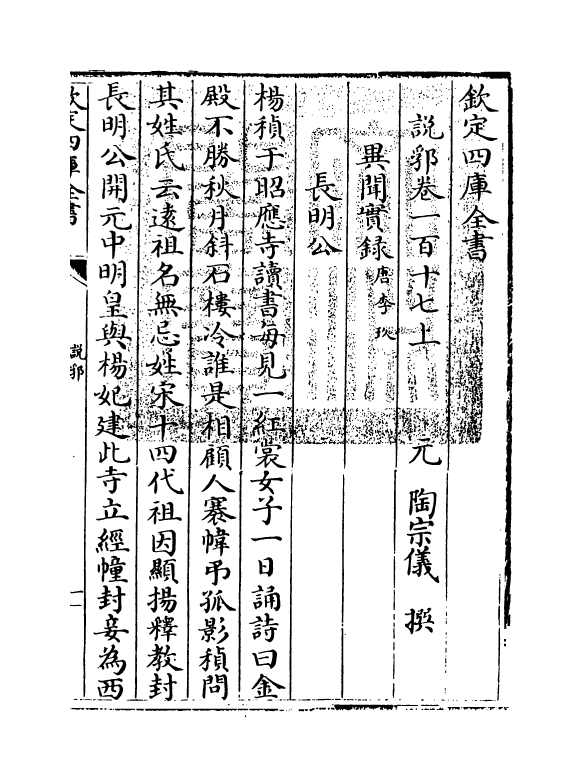 欽定四庫全書
說郛卷一百十七上　元　陶宗儀　撰
異聞實錄唐李玫
長明公
楊稹于昭應寺讀書每見一紅裳女子一日誦詩曰金
殿不勝秋月斜石樓冷誰是相顧人褰幃弔孤影稹問
其姓氏云遠祖名無忌姓宋十四代祖因顯揚釋教封
長明公開元中明皇與楊妃建此寺立經幢封妾為西
欽定四庫全書
說郛
一